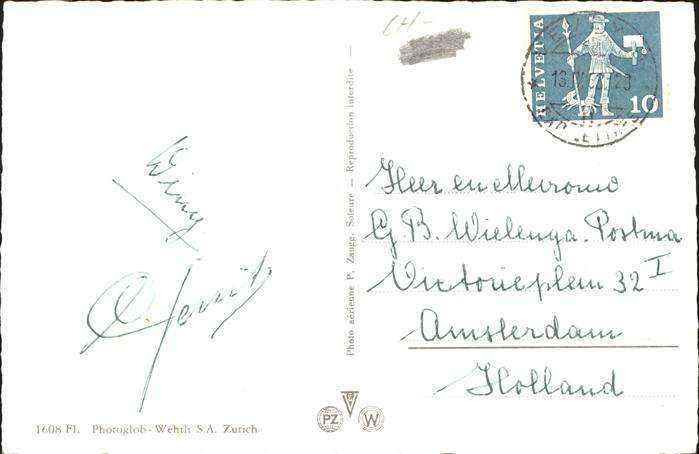 CH-
HELVETIA
10
Wimy
Gerrit
Heer en Mevrouw
G. B. Wielenga-Postma
Victorieplein 32 I
Amsterdam
Holland
Photo aérienne P. Zaugg, Soleure — Reproduction interdite -
1608 Fl. Photoglob-Wehrli S.A. Zurich
PZ
W